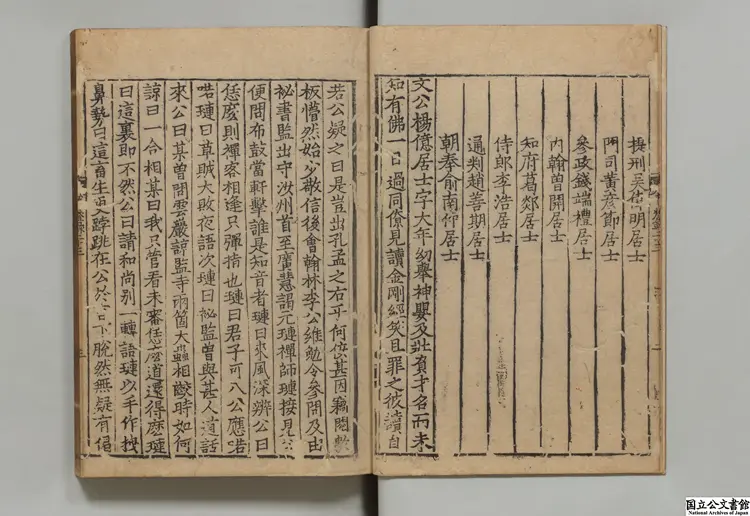 提刑吳偉明居士
門司黃彥節居士
參政錢端禮居士
內翰曾開居士
知府葛郯居士
侍郎李浩居士
通判趙善期居士
朝奉俞南仲居士
文公楊億居士字大年幼舉神嬰及壯負才名而未
知有佛一日過同僚見讀金剛經笑且罪之彼讀自
若公疑之曰是豈出孔孟之右乎何佞甚因竊閱數
板懵然始少敬信後會翰林李公維勉令參問及由
祕書監出守汝州首至廣慧謁元璉禪師璉接見公
便問布鼓當軒擊誰是知音者璉曰來風深辨公曰
恁麼則禪客相逢只彈指也璉曰君子可八公應喏
喏璉曰草賊大敗夜語次璉曰祕監曾與甚人道話
來公曰某曽問雲巖諒監寺兩箇大蟲相齩時如何
諒曰一合相某曰我只管看未審恁麼道還得麼璉
曰這裏即不然公曰請和尚別一轉語璉以手作拽
鼻勢曰這畜生更𨁝跳在公於言下脫然無疑有偈
国立公文書館
National Archives of Japan